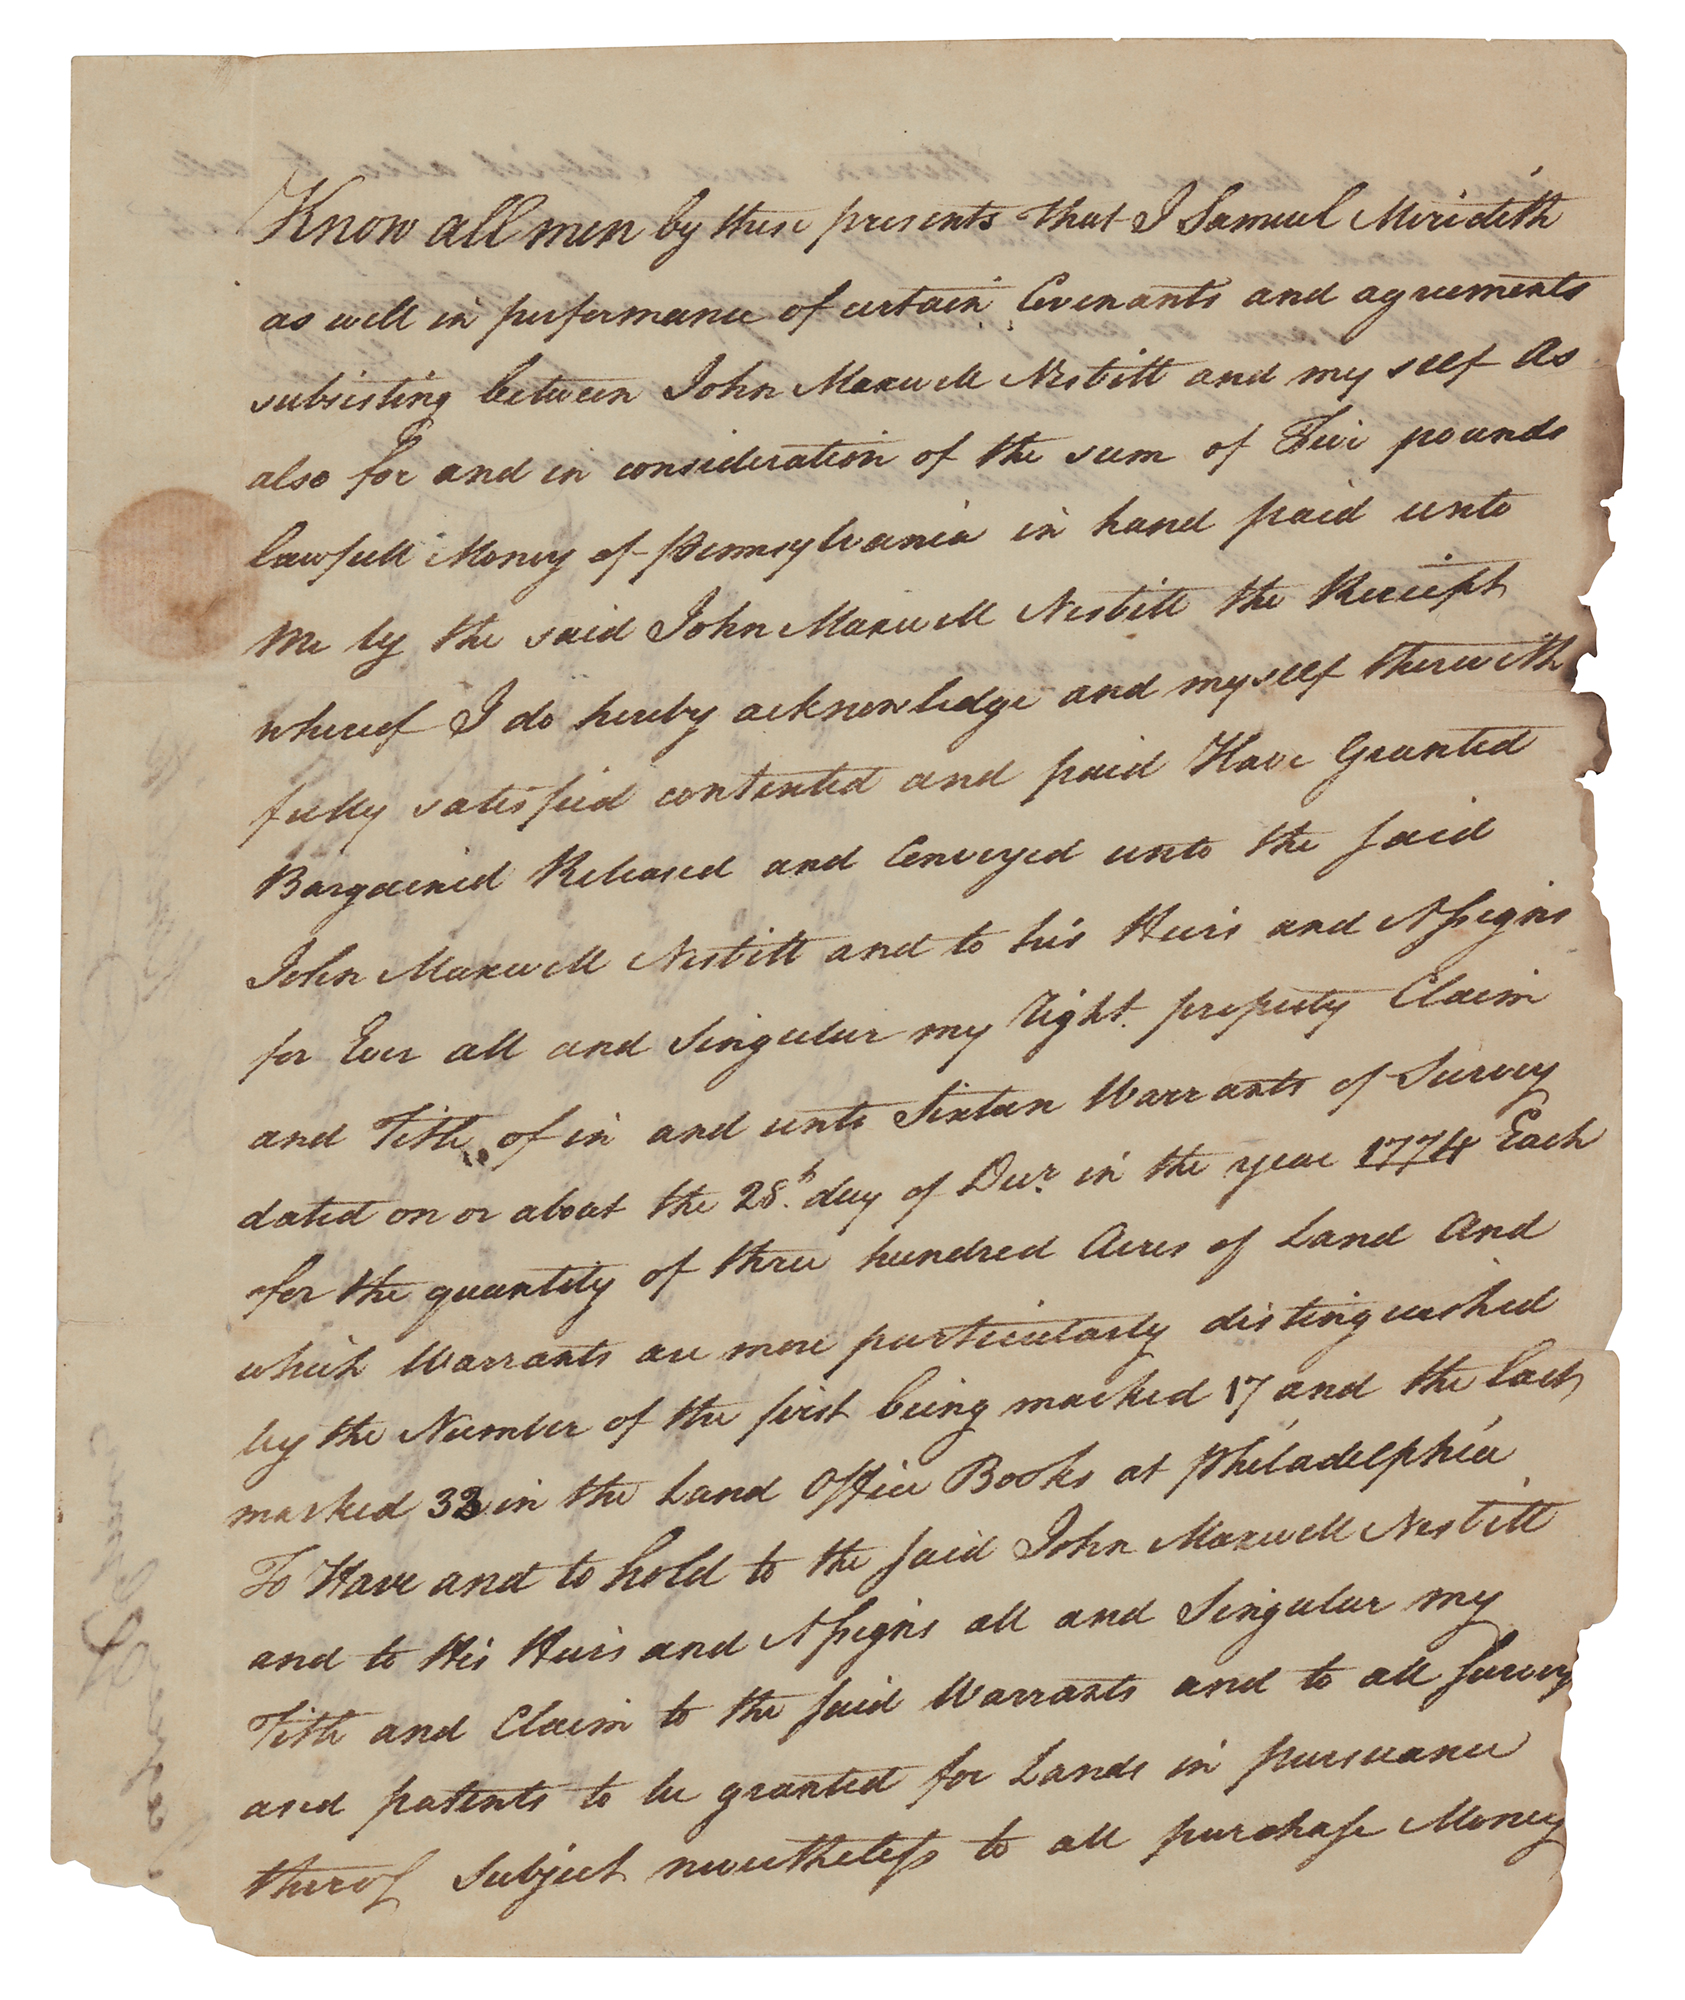 Know all men by these presents that I Samuel Meridith
as well in performance of certain Covenants and agreements
subsisting between John Maxwell Nesbitt and my self As
also for and in consideration of the sum of Five pounds
lawfull Money of Pennsylvania in hand paid unto
Me by the said John Maxwell Nesbitt the Receipt
whereof I do hereby acknowledge and myself therewith
fully satisfied contented and paid Have Granted
Bargained Released and Conveyed unto the said
John Maxwell Nesbitt and to his Heirs and Assigns
for Ever all and Singular my Right property Claim
and Title of in and unto Sixteen Warrants of Survey
dated on or about the 28th day of Decr in the year 1774 Each
for the quantity of three hundred Acres of Land And
which Warrants are more particularly distinguished
by the Number of the first being marked 17 and the last
marked 32 in the Land Office Books at Philadelphia
To Have and to hold to the said John Maxwell Nesbitt
and to His Heirs and Assigns all and Singular my
Title and Claim to the said Warrants and to all Survey
and patents to be granted for Lands in pursuance
therof Subject nevertheless to all purchase Money